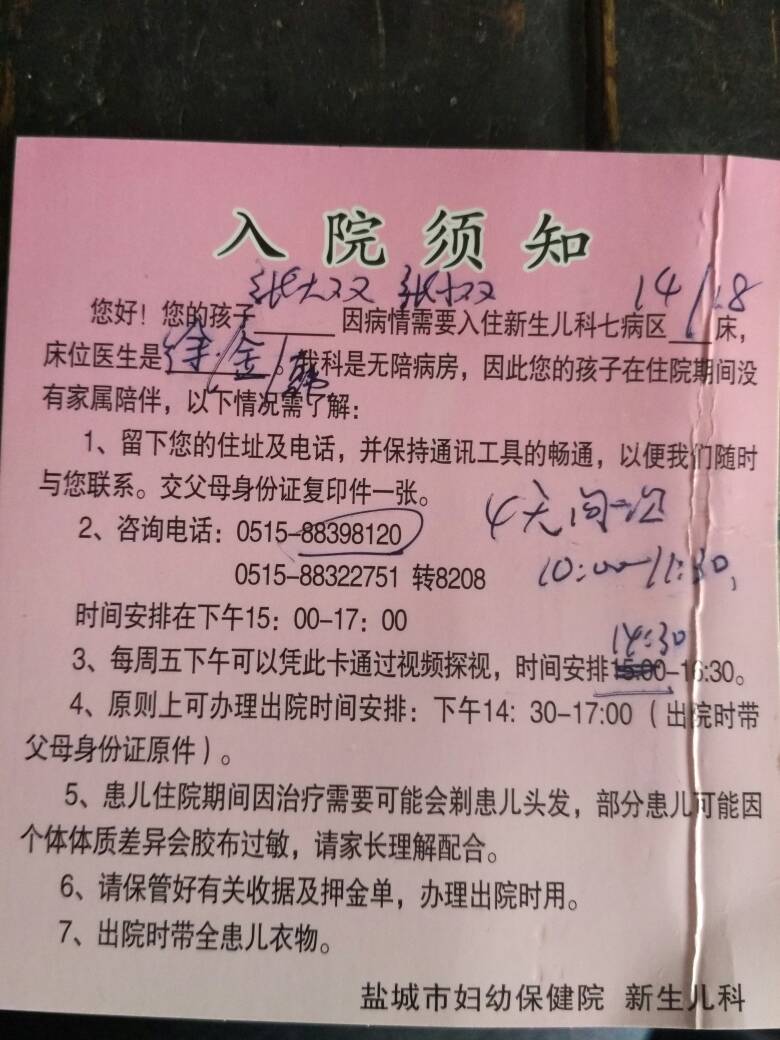 入院须知
张大双 张小双 14/18
您好！您的孩子______因病情需要入住新生儿科七病区___床，
床位医生是徐/金/ 。我科是无陪病房，因此您的孩子在住院期间没
有家属陪伴，以下情况需了解：
1、留下您的住址及电话，并保持通讯工具的畅通，以便我们随时
与您联系。交父母身份证复印件一张。
4天问一次
2、咨询电话：0515-88398120
10:00-11:30,
0515-88322751 转8208
时间安排在下午15：00-17：00
14:30
3、每周五下午可以凭此卡通过视频探视，时间安排15:00-16:30。
4、原则上可办理出院时间安排：下午14：30-17:00（出院时带
父母身份证原件）。
5、患儿住院期间因治疗需要可能会剃患儿头发，部分患儿可能因
个体体质差异会胶布过敏，请家长理解配合。
6、请保管好有关收据及押金单，办理出院时用。
7、出院时带全患儿衣物。
盐城市妇幼保健院 新生儿科